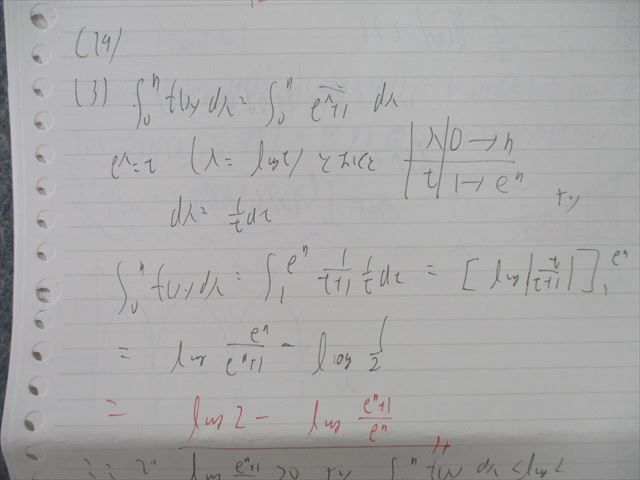 (14)
(3) ∫₀ⁿ f(x) dx = ∫₀ⁿ 1/(eˣ+1) dx
eˣ = t (x = log t) とおくと x | 0 → n
t | 1 → eⁿ より
dx = 1/t dt
∫₀ⁿ f(x) dx = ∫₁^{eⁿ} 1/(t+1) 1/t dt = [log|t/(t+1)|]₁^{eⁿ}
= log eⁿ/(eⁿ+1) - log 1/2
= log 2 - log (eⁿ+1)/eⁿ
ここで log (eⁿ+1)/eⁿ > 0 より ∫₀ⁿ f(x) dx < log 2